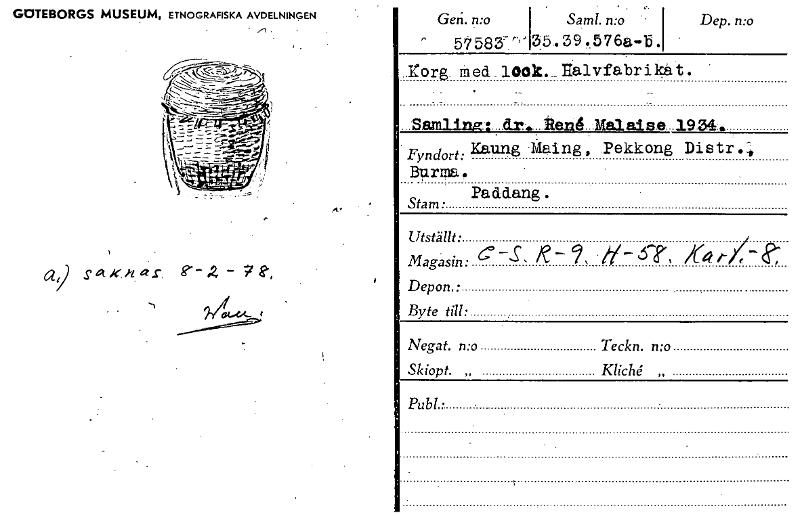 GÖTEBORGS MUSEUM, ETNOGRAFISKA AVDELNINGEN
a.) saknas 8-2-78.
Gen. n:o Saml. n:o Dep. n:o
57583 35.39.576a-b.
Korg med lock. Halvfabrikat.
Samling: dr. René Malaise 1934.
Fyndort: Kaung Maing, Pekkong Distr.,
Burma.
Stam: Paddang.
Utställt:
Magasin: G-S. R-9. H-58. Kart.-8.
Depon.:
Byte till:
Negat. n:o Teckn. n:o
Skiopt. „ Kliché „
Publ.: